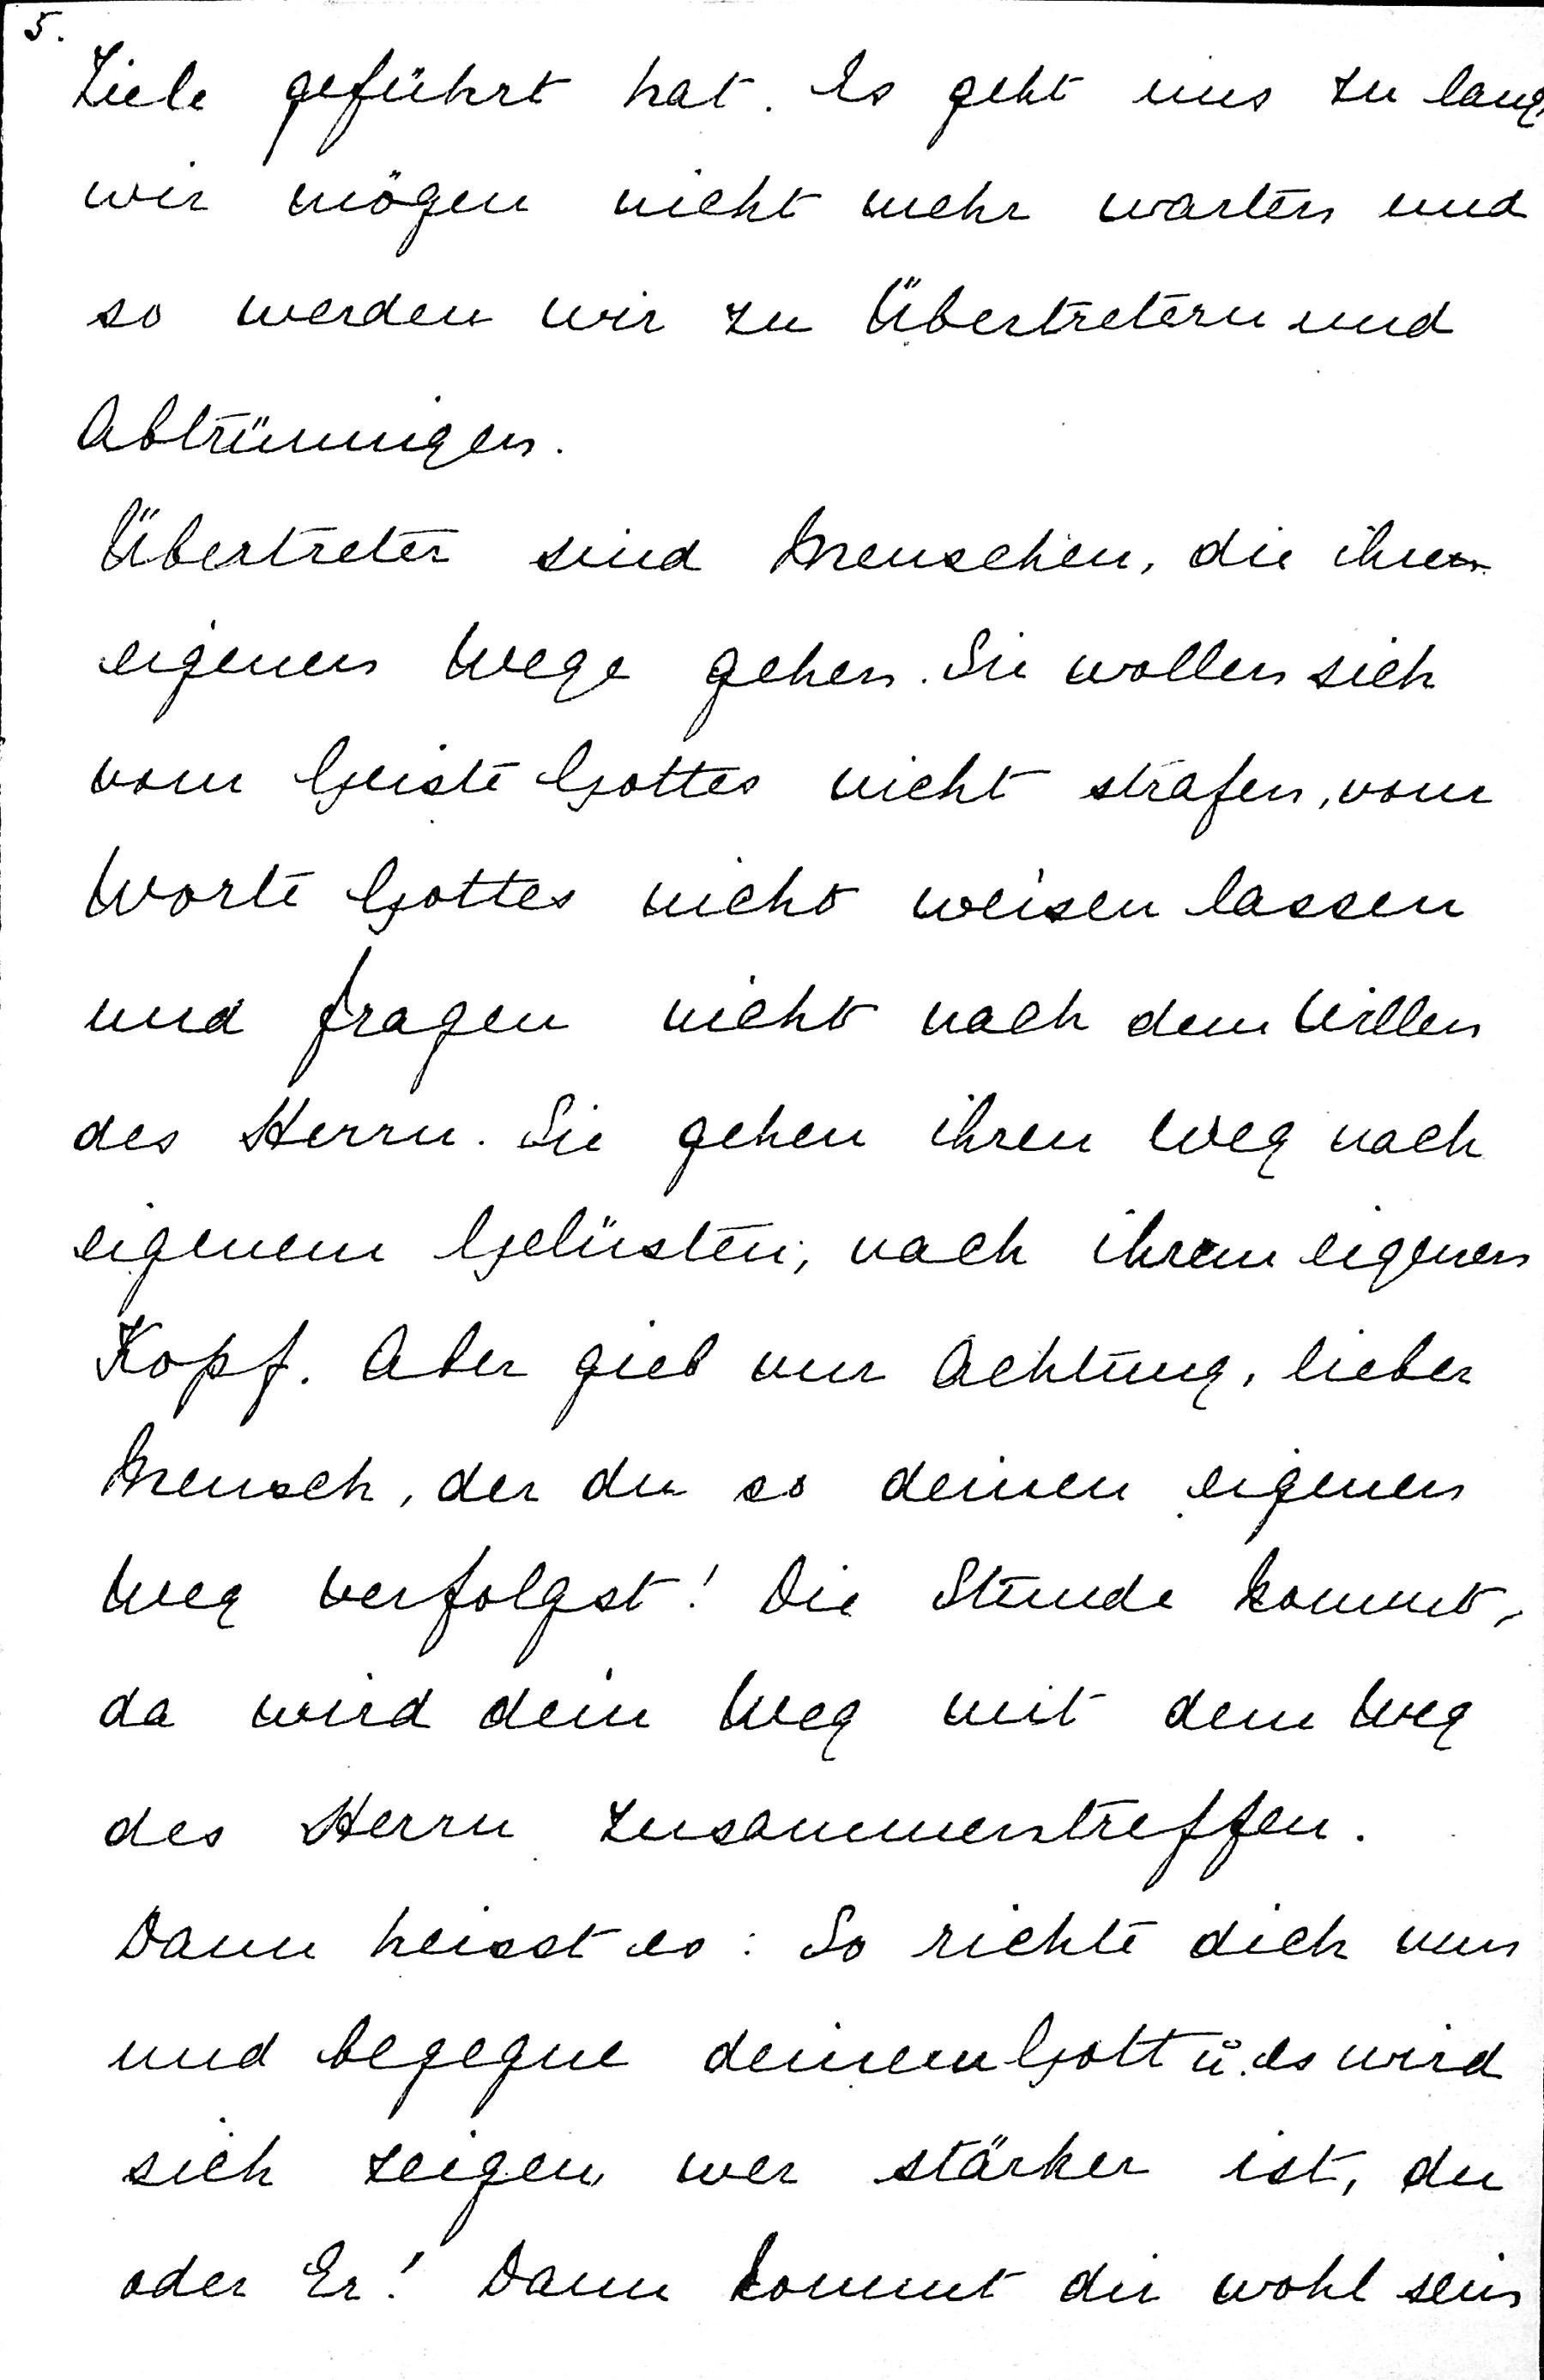 5.
Ziele geführt hat. Es geht uns zu lang,
wir mögen nicht mehr warten und
so werden wir zu Übertretern und
Abtrünnigen.
Übertreter sind Menschen, die ihre
eigenen Wege gehen. Sie wollen sich
vom Geiste Gottes nicht strafen, vom
Worte Gottes nicht weisen lassen
und fragen nicht nach dem Willen
des Herrn. Sie gehen ihren Weg nach
eigenem Gelüsten, nach ihrem eigenen
Kopf. Aber gieb nur Achtung, lieber
Mensch, der du so deinen eigenen
Weg verfolgst! Die Stunde kommt,
da wird dein Weg mit dem Weg
des Herrn zusammentreffen.
Dann heisst es: So richte dich nun
und begegne deinem Gott u. es wird
sich zeigen wer stärker ist, du
oder Er! Dann kommt dir wohl sein